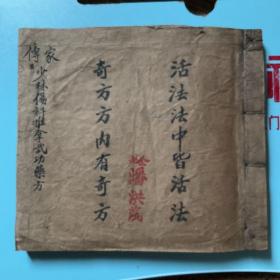 活法法中皆活法
奇方方内有奇方
家傳
少林傷科推拿武功藥方